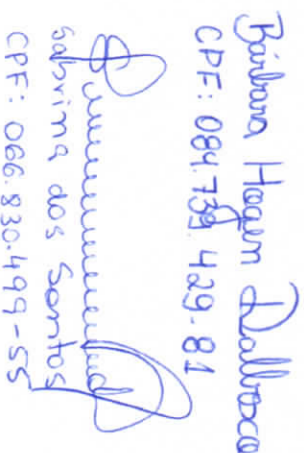 Bárbara Hagen Dallrosca
CPF: 084.739.429-81
Sabrina dos Santos
CPF: 066.830.499-55